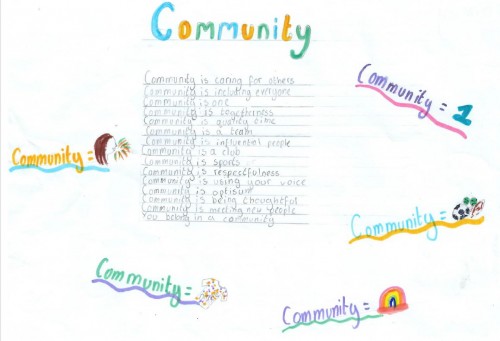 Community
Community is caring for others
Community is including everyone
Community is one
Community is togetherness
Community is quality time
Community is a team
Community is influential people
Community is a club
Community is sports
Community is respectfulness
Community is using your voice
Community is optisum
Community is being thoughtful
Community is meeting new people
You belong in a community
Community = 1
Community =
Community =
Community =
Community =